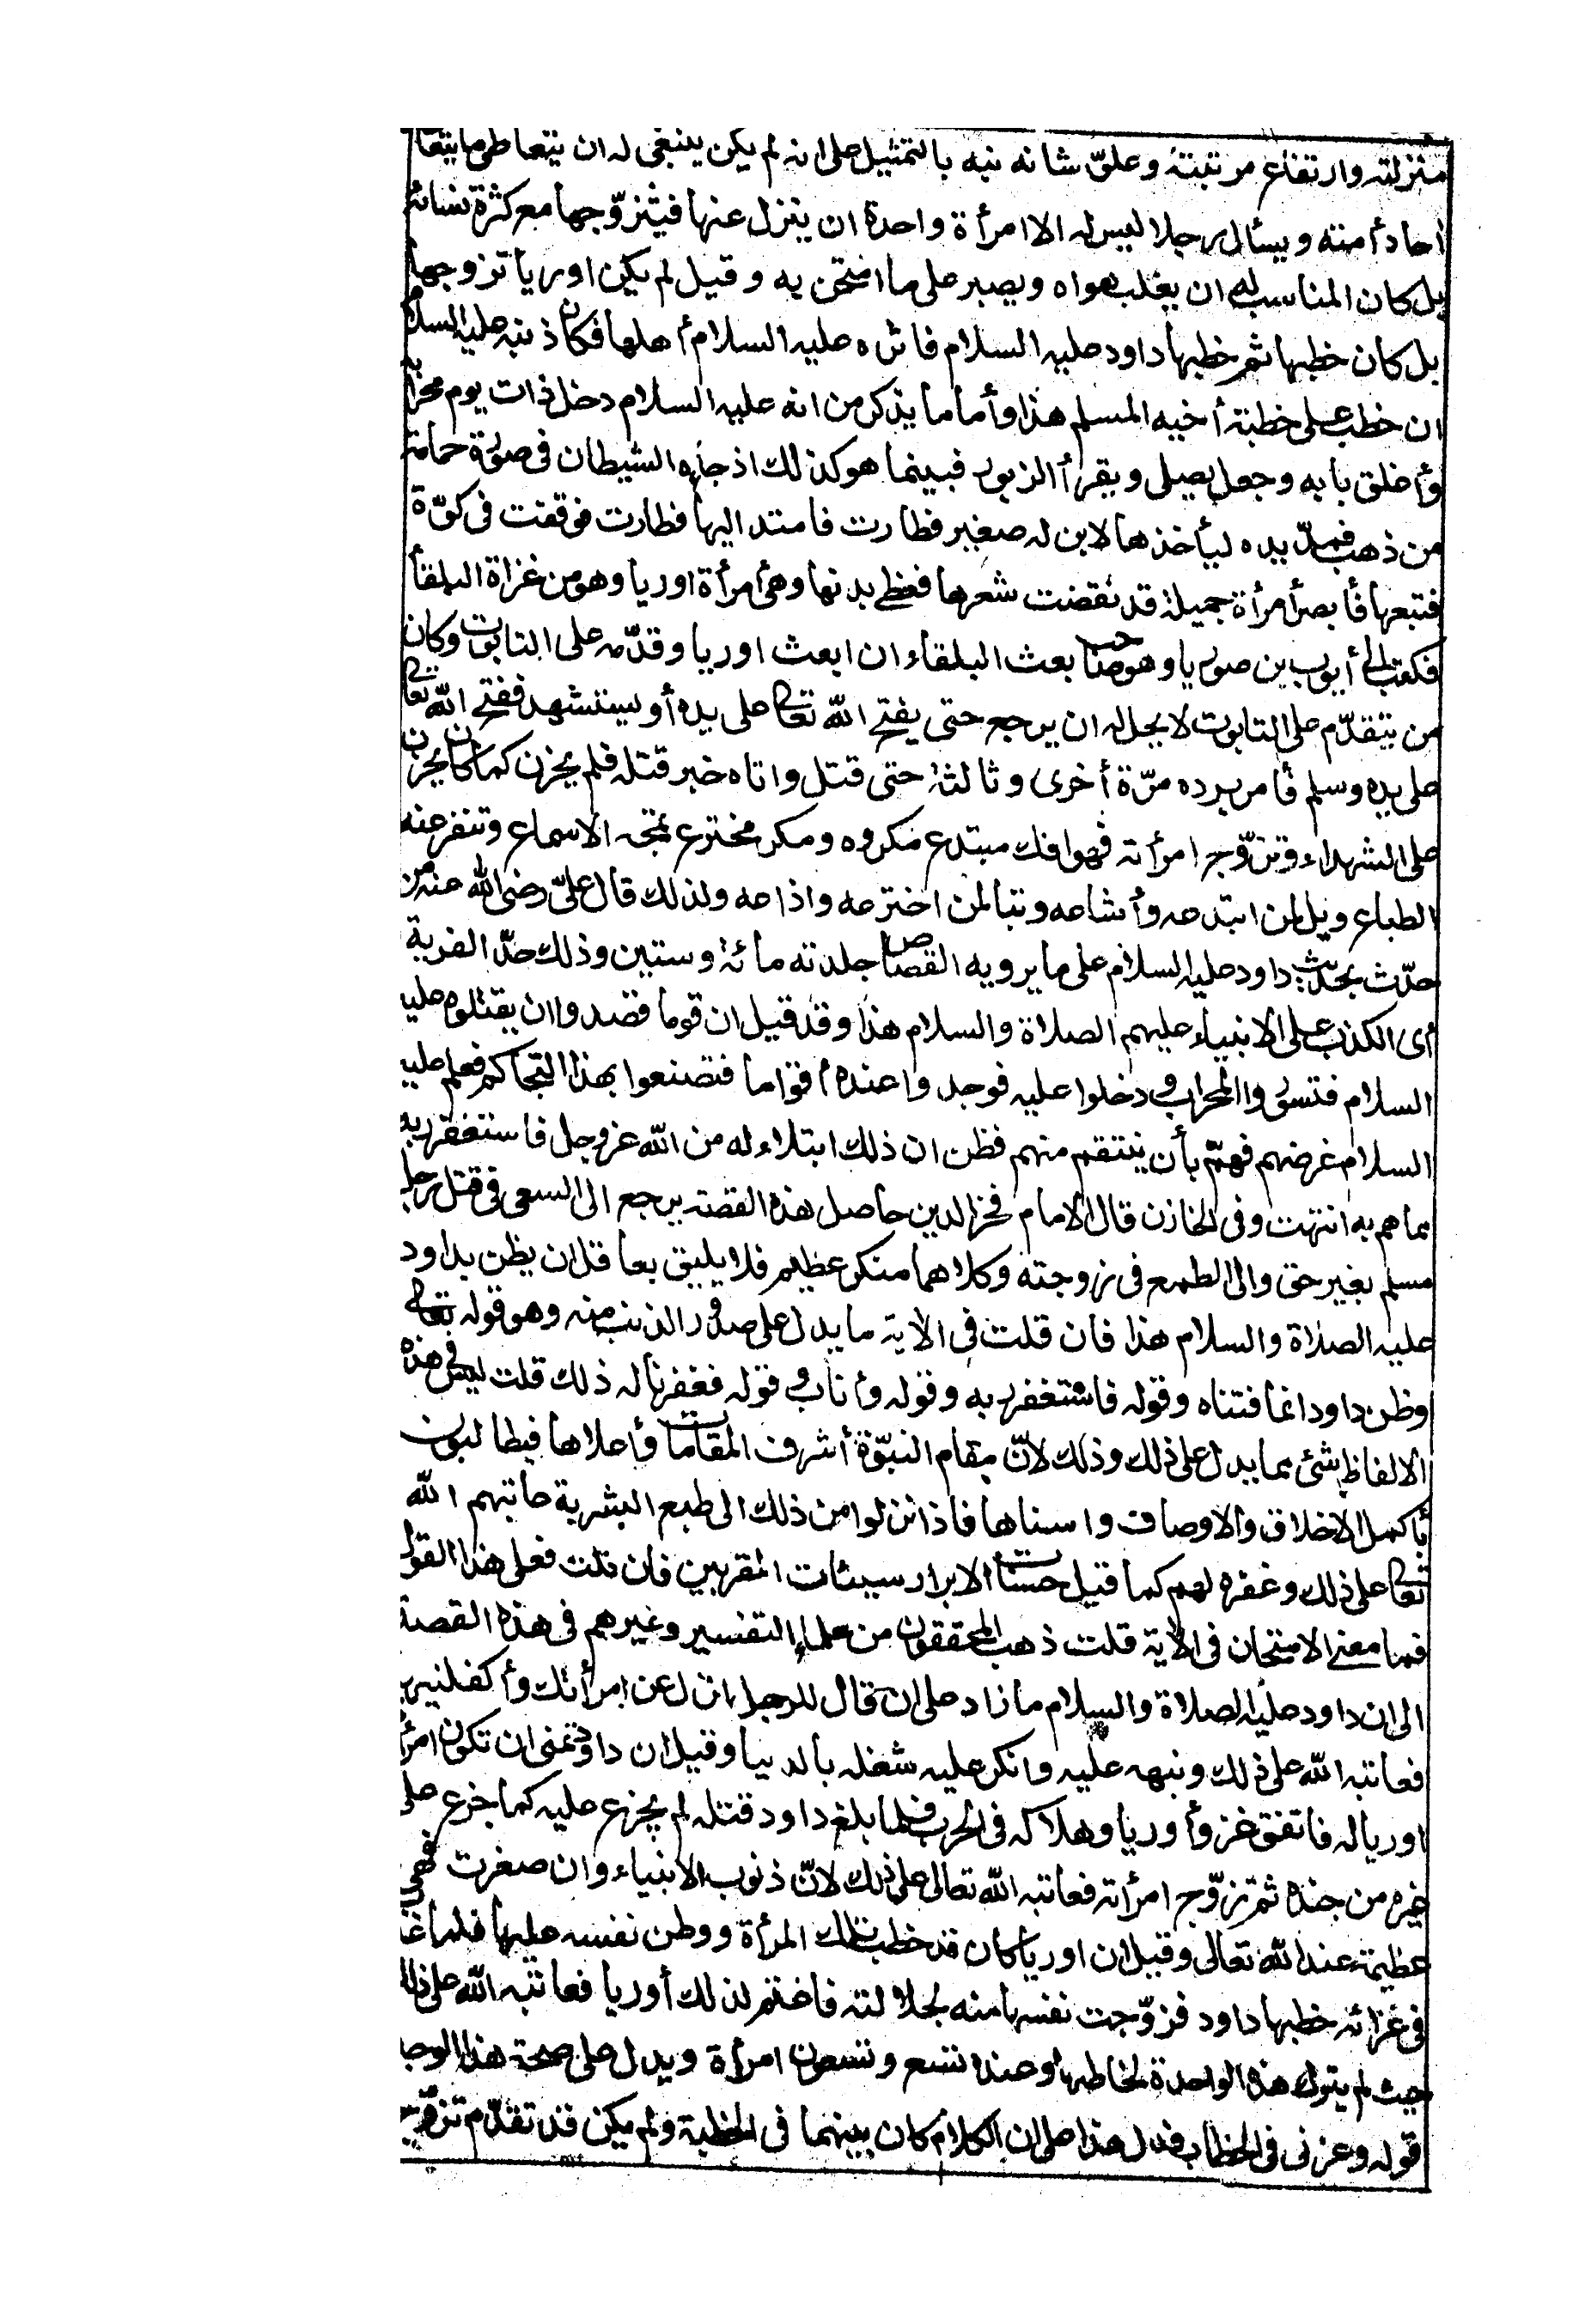 منزلته وارتفاع مرتبته وعلوّ شانه نبه بالتمثيل على انه لم يكن ينبغى له ان يتعاطى ما يتعا
احاد أمته ويسأل رجلا ليس له الا امرأة واحدة ان ينزل عنها فيتزوّجها مع كثرة نسائه
بل كان المناسب له ان يغلب هواه ويصبر على ما امتحن به وقيل لم يكن اوريا تزوجها
بل كان خطبها ثم خطبها داود عليه السلام فاثره عليه السلام أهلها فكان ذنبه عليه السلام
ان خطب على خطبة أخيه المسلم هذا وأما ما يذكر من انه عليه السلام دخل ذات يوم محرابه
وأغلق بابه وجعل يصلى ويقرأ الزبور فبينما هو كذلك اذ جاءه الشيطان فى صورة حمامة
من ذهب فمدّ يده ليأخذها لابن له صغير فطارت فامتد اليها فطارت فوقفت فى كوّة
فتبعها فأبصر امرأة جميلة قد نقضت شعرها فغطى بدنها وهى أمرأة اوريا وهو من غزاة البلقاء
فكتب الى أيوب بن صوريا وهو صاحب بعث البلقاء ان ابعث اوريا وقدّمه على التابوت وكان
من يتقدّم على التابوت لا يحل له ان يرجع حتى يفتح الله تعالى على يده أو يستشهد ففتح الله تعالى
على يده وسلم فأمر برده مرّة أخرى وثالثة حتى قتل واتاه خبر قتله فلم يحزن كما كان يحزن
على الشهداء وتزوّج امرأته فهو افك مبتدع مكروه ومكر مخترع تمجه الاسماع وتنفر عنه
الطباع ويل لمن ابتدعه وأشاعه وتبا لمن اخترعه واذاعه ولذلك قال علىّ رضى الله عنه من
حدّث بحديث داود عليه السلام على ما يرويه القصاص جلدته مائة وستين وذلك حدّ الفرية
أى الكذب على الانبياء عليهم الصلاة والسلام هذا وقد قيل ان قوما قصدوا ان يقتلوه عليه
السلام فتسوروا المحراب ودخلوا عليه فوجدوا عنده أقواما فتصنعوا بهذا التحاكم فعلم عليه
السلام غرضهم فهمّ بأن ينتقم منهم فظن ان ذلك ابتلاء له من الله عز وجل فاستغفر ربه
مما هم به انتهت وفى الخازن قال الامام فخر الدين حاصل هذه القصة يرجع الى السعى فى قتل رجل
مسلم بغير حق والى الطمع فى زوجته وكلاهما منكر عظيم فلا يليق بعاقل ان يظن بداود
عليه الصلاة والسلام هذا فان قلت فى الاية ما يدل على صدور الذنب منه وهو قوله تعالى
وظن داود انما فتناه وقوله فاستغفر ربه وقوله وأناب وقوله فغفرنا له ذلك قلت ليس فى هذه
الالفاظ شئ مما يدل على ذلك وذلك لانّ مقام النبوّة أشرف المقامات وأعلاها فيطالبون
بأكمل الاخلاق والاوصاف واسناها فاذا نزلوا من ذلك الى طبع البشرية عاتبهم الله
تعالى على ذلك وغفره لهم كما قيل حسنات الابرار سيئات المقربين فان قلت فعلى هذا القول
فما معنى الامتحان فى الاية قلت ذهب المحققون من علماء التفسير وغيرهم فى هذه القصة
الى ان داود عليه الصلاة والسلام ما زاد على ان قال للرجل انزل عن امرأتك وأكفلنيها
فعاتبه الله على ذلك ونبهه عليه وانكر عليه شغله بالدنيا وقيل ان داود تمنى ان تكون امرأة
اوريا له فاتفق غزو أوريا وهلاكه فى الحرب فلما بلغ داود قتله لم يجزع عليه كما جزع على
غيره من جنده ثم تزوّج امرأته فعاتبه الله تعالى على ذلك لانّ ذنوب الانبياء وان صغرت فهى
عظيمة عند الله تعالى وقيل ان اوريا كان قد خطب تلك المرأة ووطن نفسه عليها فلما غا
فى غزائه خطبها داود فزوّجت نفسها منه لجلالته فاغتم لذلك أوريا فعاتبه الله على ذلك
حيث لم يترك هذه الواحدة لخاطبها وعنده تسع وتسعون امرأة ويدل على صحة هذا الوجه
قوله وعزنى فى الخطاب فدل هذا على ان الكلام كان بينهما فى الخطبة ولم يكن قد تقدّم تزوّج